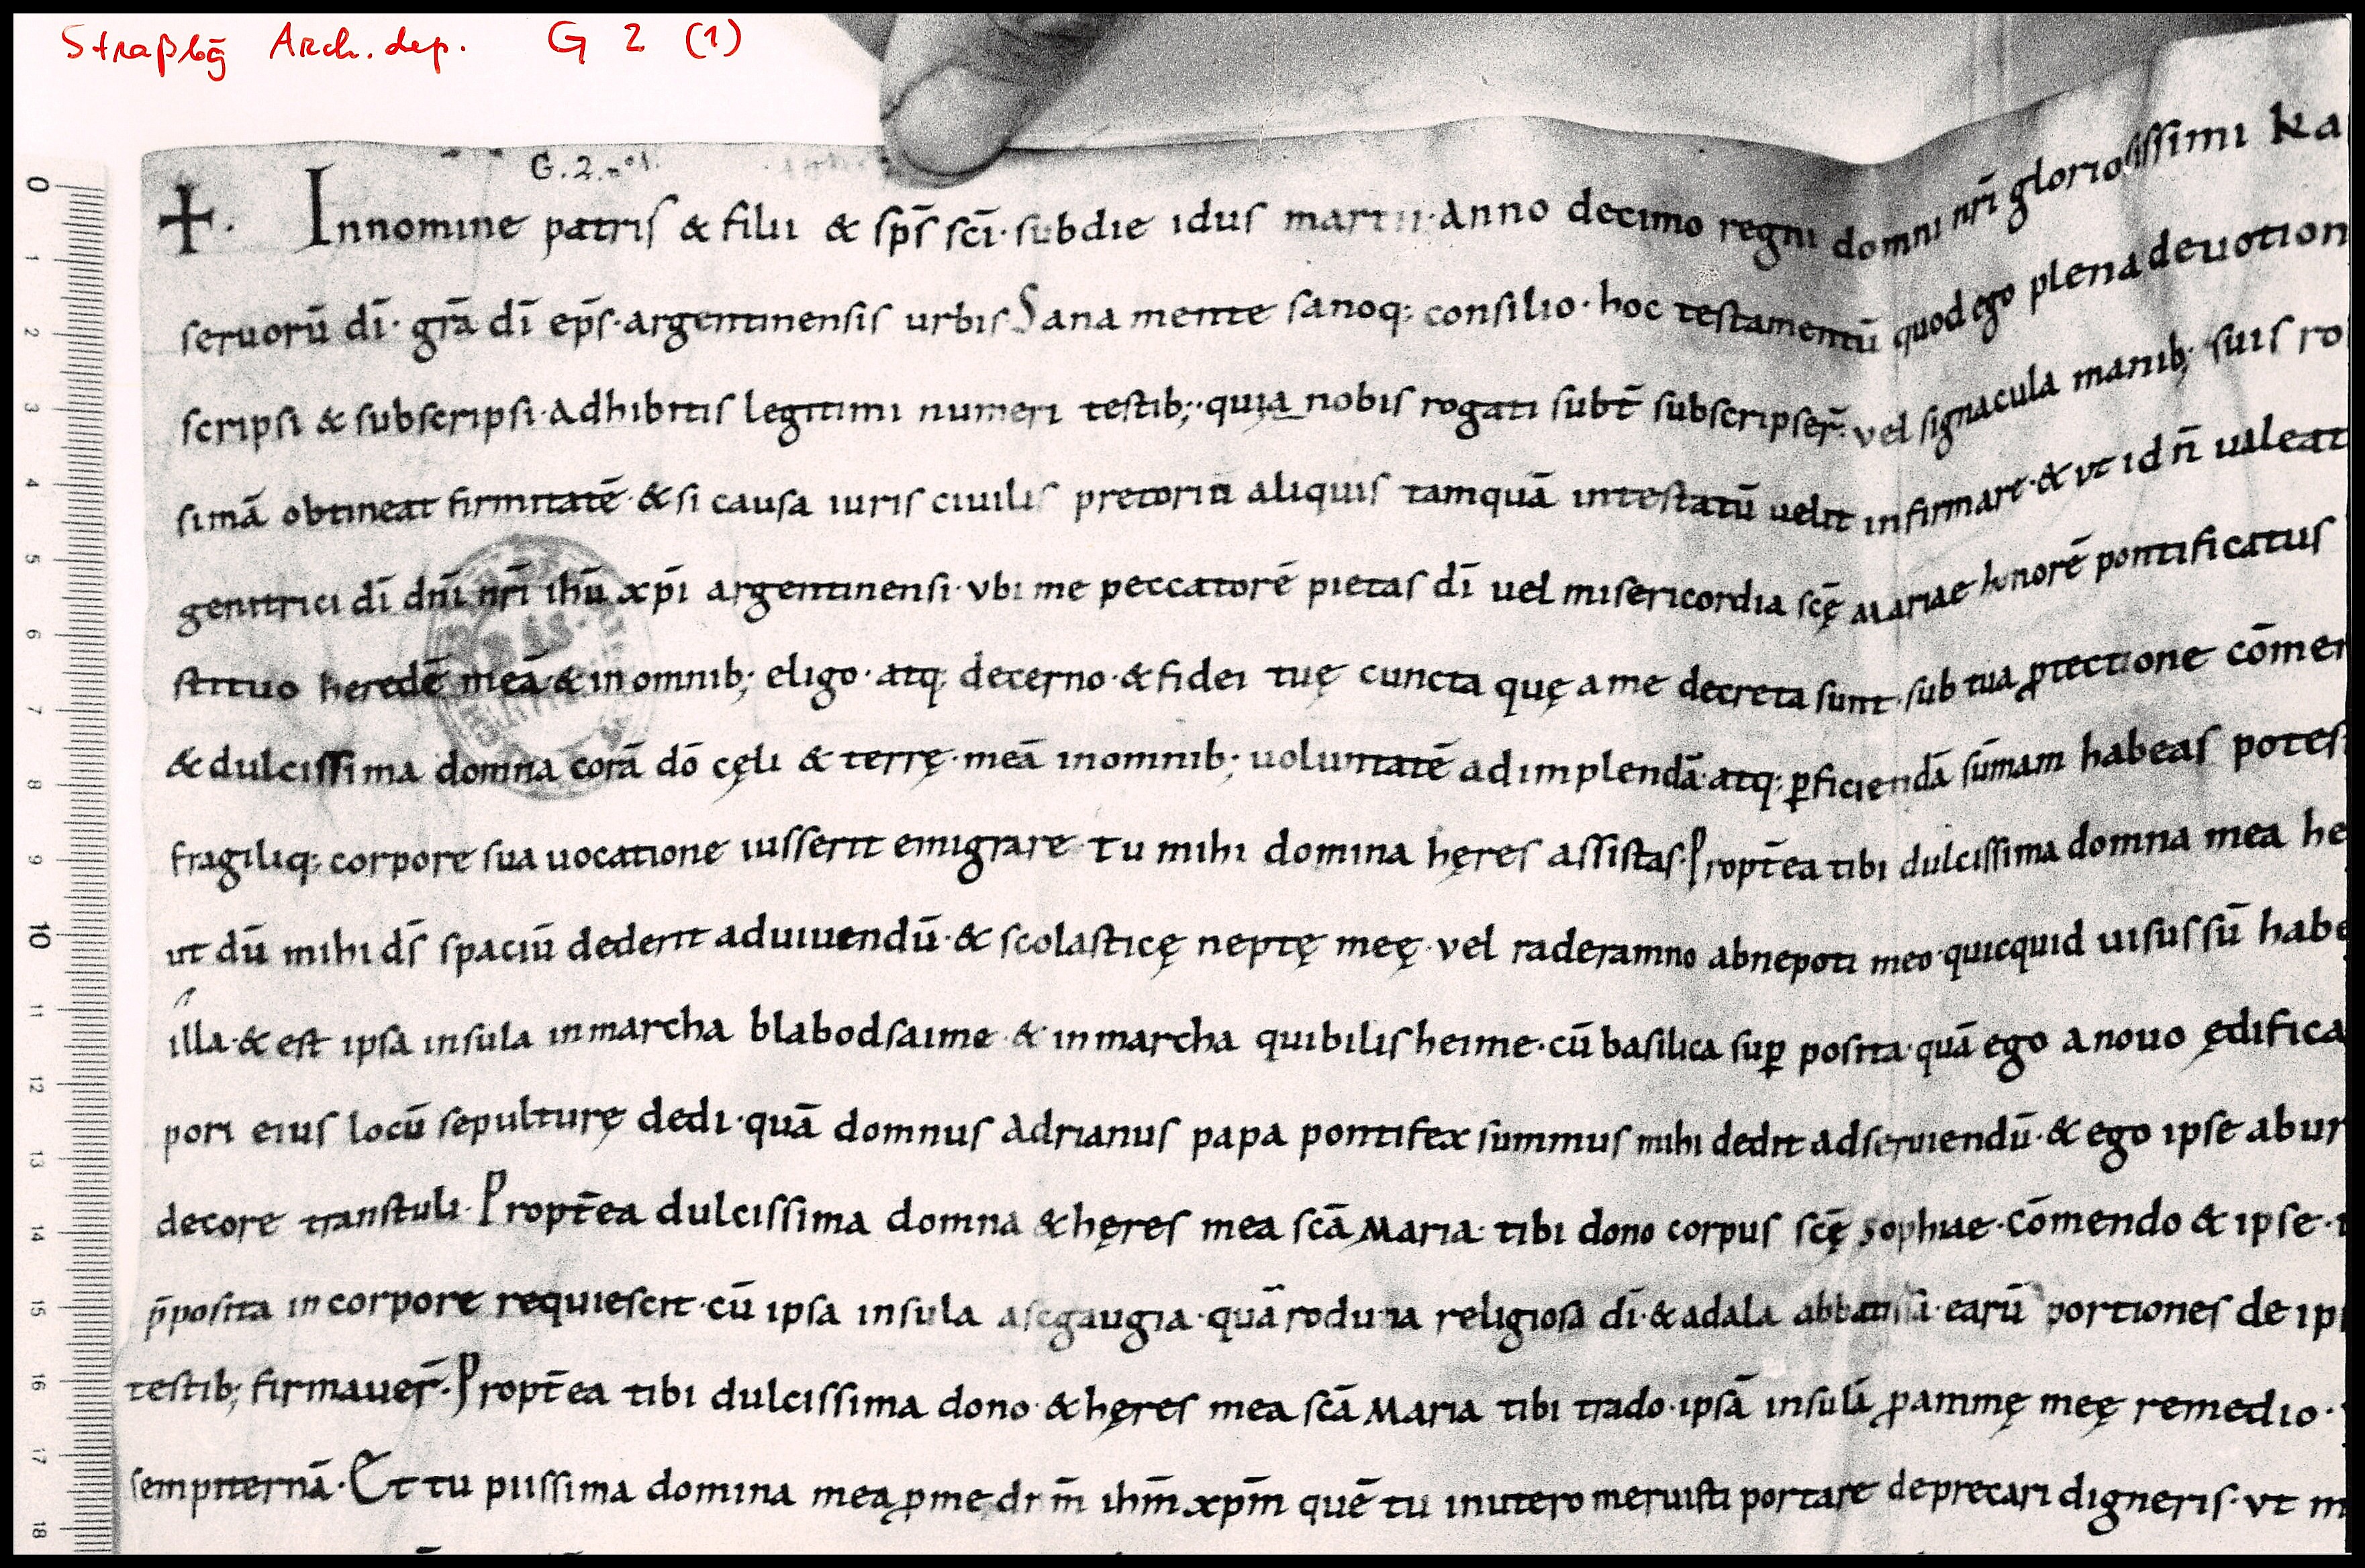 Straßbg Arch. dep. G 2 (1)
G. 2. n°1.
+. Innomine patris & filii & sp̄s sc̄i · subdie idus martii · Anno decimo regni domni nr̄i gloriosissimi Ka
seruorū dī · gr̄a dī ep̄s · argentinensis urbis Sana mente sanoq: consilio · hoc testamentū quod ego plena deuotion
scripsi & subscripsi · Adhibitis legitimi numeri testib; · quia nobis rogati subt̄ subscripser̄ · vel signacula manib; suis ro
simā obtineat firmitatē · & si causa iuris ciuilis pretorii aliquis tamquā intestatū uelit infirmare · & ut id n̄ ualeat
genitrici dī dn̄i nr̄i ihū xp̄i argentinensi · vbi me peccatorē pietas dī uel misericordia sc̄ę Mariae honorē pontificatus
stituo heredē meā · & in omnib; eligo · atq; decerno · & fidei tuę cuncta quę a me decreta sunt · sub tua ꝓtectione cōmen
& dulcissima domna corā dō cęli & terrę · meā inomnib; uoluntatē adimplendā · atq: ꝑficiendā sūmam habeas potes
fragiliq: corpore sua uocatione iusserit emigrare Tu mihi domina hęres assistas · Propt̄ea tibi dulcissima domna mea he
ut dū mihi ds̄ spaciū dederit aduiuendū · & scolasticę neptę meę · vel raderamno abnepoti meo · quicquid uisus sū habe
illa · & est ipsa insula inmarcha blabodsaime & inmarcha quibilisheime · cū basilica suꝑ posita · quā ego anouo ędifica
pori eius locū sepulturę dedi · quā domnus Adrianus papa pontifex summus mihi dedit adseruiendū · & ego ipse abur
decore transtuli · Propt̄ea dulcissima domna & hęres mea sc̄ā Maria · tibi dono corpus sc̄ę Sophiae · Cōmendo & ipse ·
p̄posita incorpore requiescit · cū ipsa insula ascgaugia · quā roduna religiosa dī · & adala abbatissa · earū portiones de ip
testib; firmauer̄ · Propt̄ea tibi dulcissima dono · & hęres mea sc̄ā Maria tibi trado · ipsā insulā ꝓ animę meę remedio ·
sempiternā · Et tu piissima domina mea ꝓ me, dn̄m ihm̄ xpm̄ quē tu inutero meruisti portare deprecari digneris · vt m
0
1
2
3
4
5
6
7
8
9
10
11
12
13
14
15
16
17
18